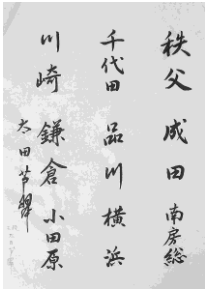 秩父 成田 南房総
千代田 品川 横浜
川崎 鎌倉 小田原
太田